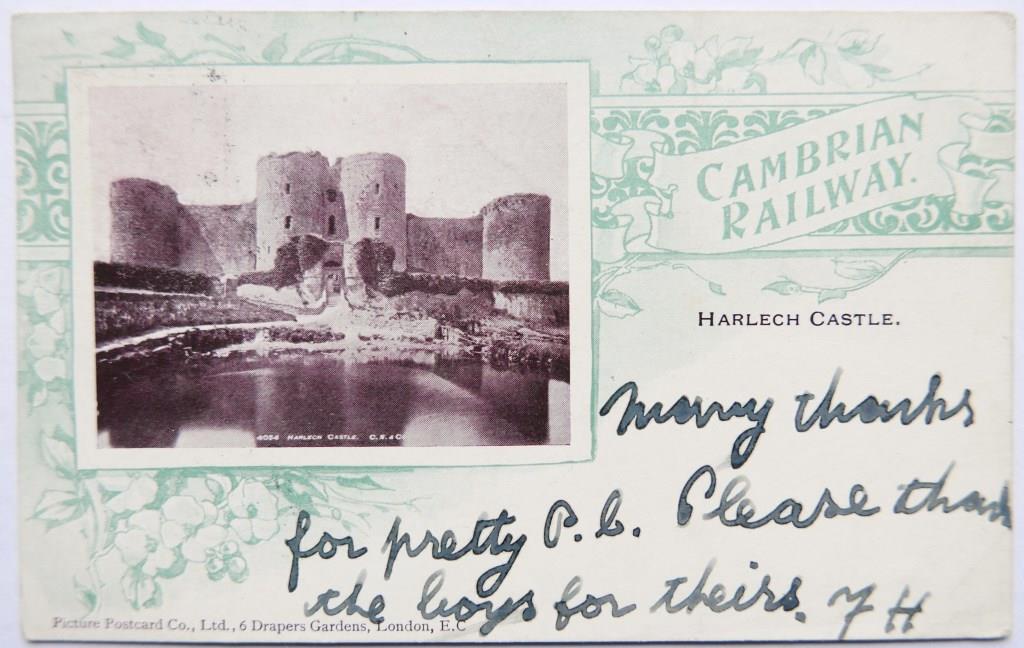 CAMBRIAN
RAILWAY.
HARLECH CASTLE.
4054 HARLECH CASTLE. C.N.& Co
Marry thanks
for pretty P.C. Please thank
the boys for theirs. F H
Picture Postcard Co., Ltd., 6 Drapers Gardens, London, E.C